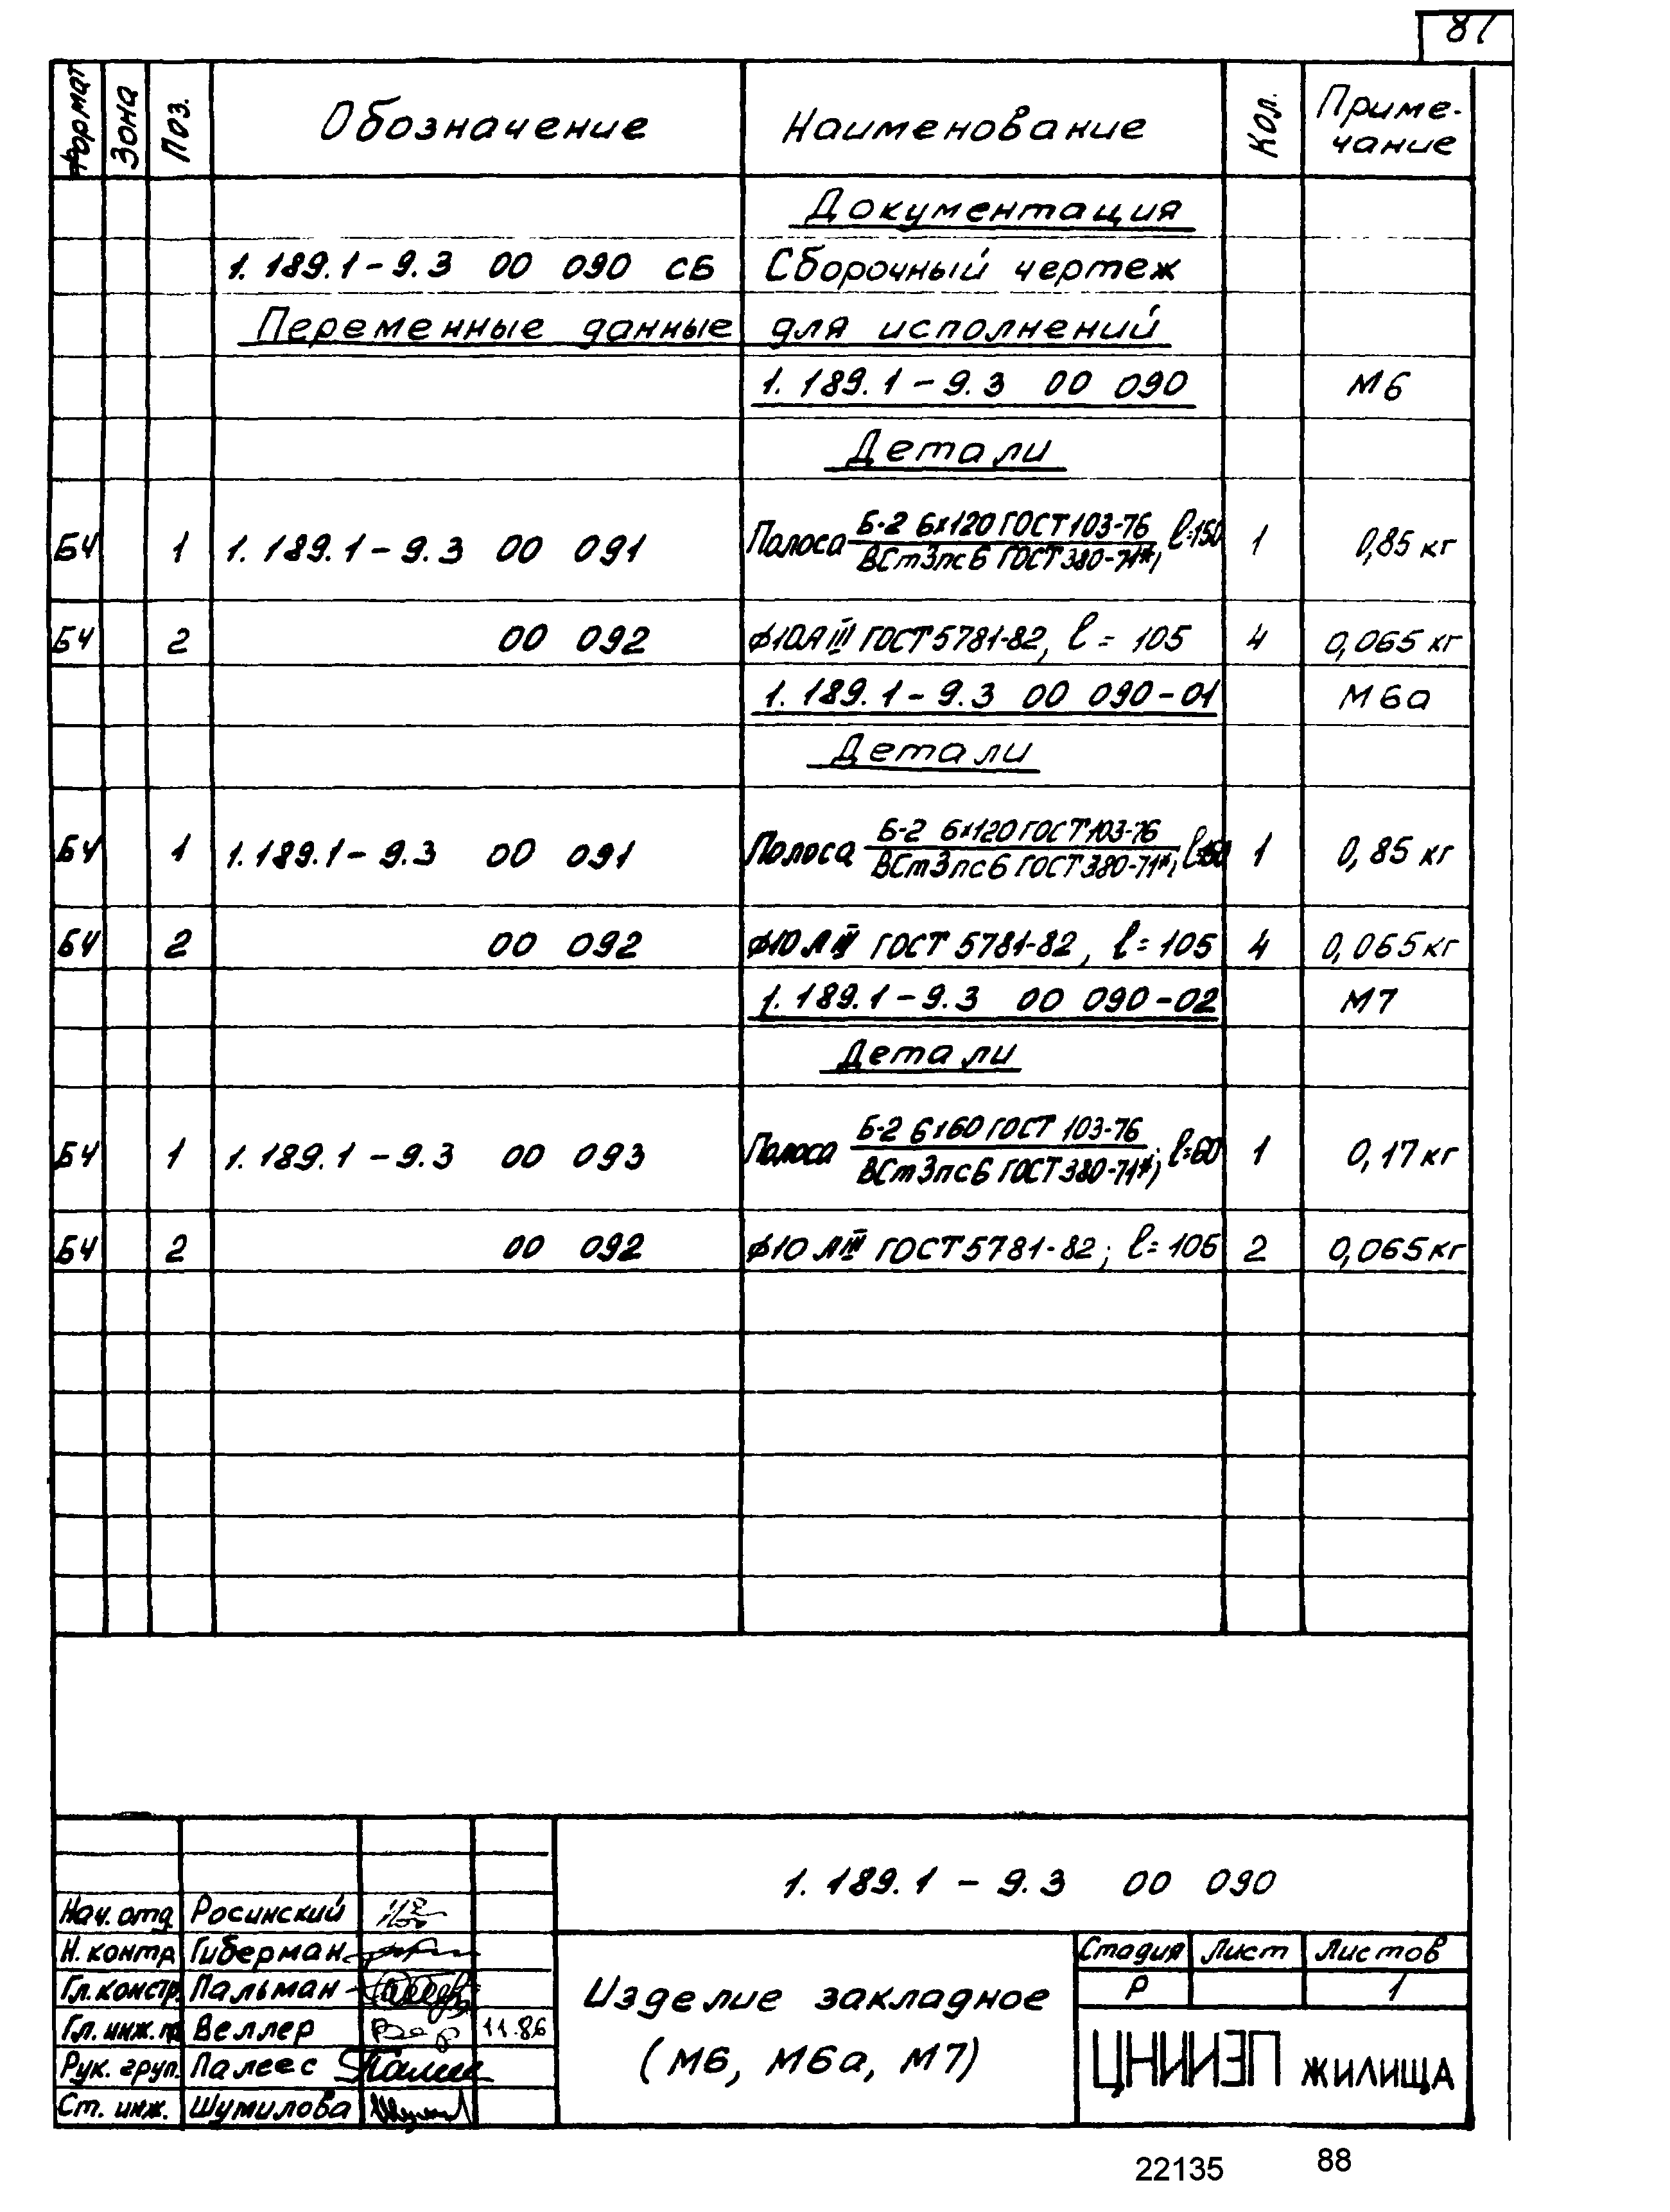 87
Формат Зона Поз. Обозначение Наименование Кол. Приме-
чание
Документация
1.189.1-9.3 00 090 СБ Сборочный чертеж
Переменные данные для исполнений
1.189.1-9.3 00 090 М6
Детали
Б-2 6х120 ГОСТ 103-76
БЧ 1 1.189.1-9.3 00 091 Полоса l=150 1 0,85 кг
ВСт3пс6 ГОСТ 380-71*;
БЧ 2 00 092 ф10АIII ГОСТ 5781-82, l = 105 4 0,065 кг
1.189.1-9.3 00 090-01 М6а
Детали
Б-2 6х120 ГОСТ 103-76
БЧ 1 1.189.1-9.3 00 091 Полоса l=150 1 0,85 кг
ВСт3пс6 ГОСТ 380-71*;
БЧ 2 00 092 ф10АIII ГОСТ 5781-82, l=105 4 0,065 кг
1.189.1-9.3 00 090-02 М7
Детали
Б-2 6х60 ГОСТ 103-76
БЧ 1 1.189.1-9.3 00 093 Полоса l=60 1 0,17 кг
ВСт3пс6 ГОСТ 380-71*;
БЧ 2 00 092 ф10АIII ГОСТ 5781-82; l=105 2 0,065 кг
1.189.1-9.3 00 090
Нач. отд Росинский
Н. контр Гиберман
Гл. констр. Пальман
Гл. инж. пр Веллер 11.86
Рук. груп. Палеес
Ст. инж. Шумилова
Изделие закладное
(М6, М6а, М7)
Стадия Лист Листов
Р 1
ЦНИИЭП ЖИЛИЩА
22135 88